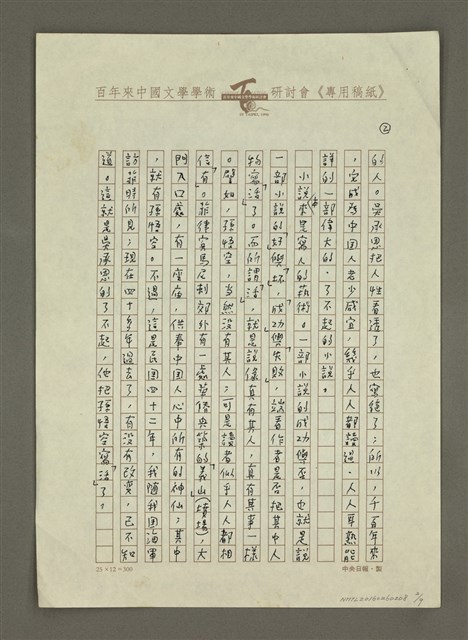 百年來中國文學學術研討會《專用稿紙》
②
的人。吳承恩把人性看透了,也寫絕了;所以,千百年來
,完成為中國人老少咸宜,幾乎人人都讀過,人人耳熟能
詳的一部偉大的、了不起的小說。
小說來是寫人的藝術。一部小說的成功與否,也就是說
一部小說的「好與壞」,成功與失敗,端看作者是否把其中人
物「寫活」了。而所謂「活」,就是說像真有其人,真有其事一樣
。譬如,孫悟空,當然沒有其人;可是讀者似乎人人都相
信「有」。菲律賓馬尼刺郊外有一處華僑興築的「義山」(墳場),大
門入口處,有一座廟,供奉中國人心中所有的神仙;其中
,就有孫悟空。不過,這是民國四十二年,我隨我國海軍
訪菲時所見;現在四十多年過去了,有沒有改變,已不知
道。這就是吳承恩的了不起,他把孫悟空「寫活」了。
25×12=300
中央日報・製